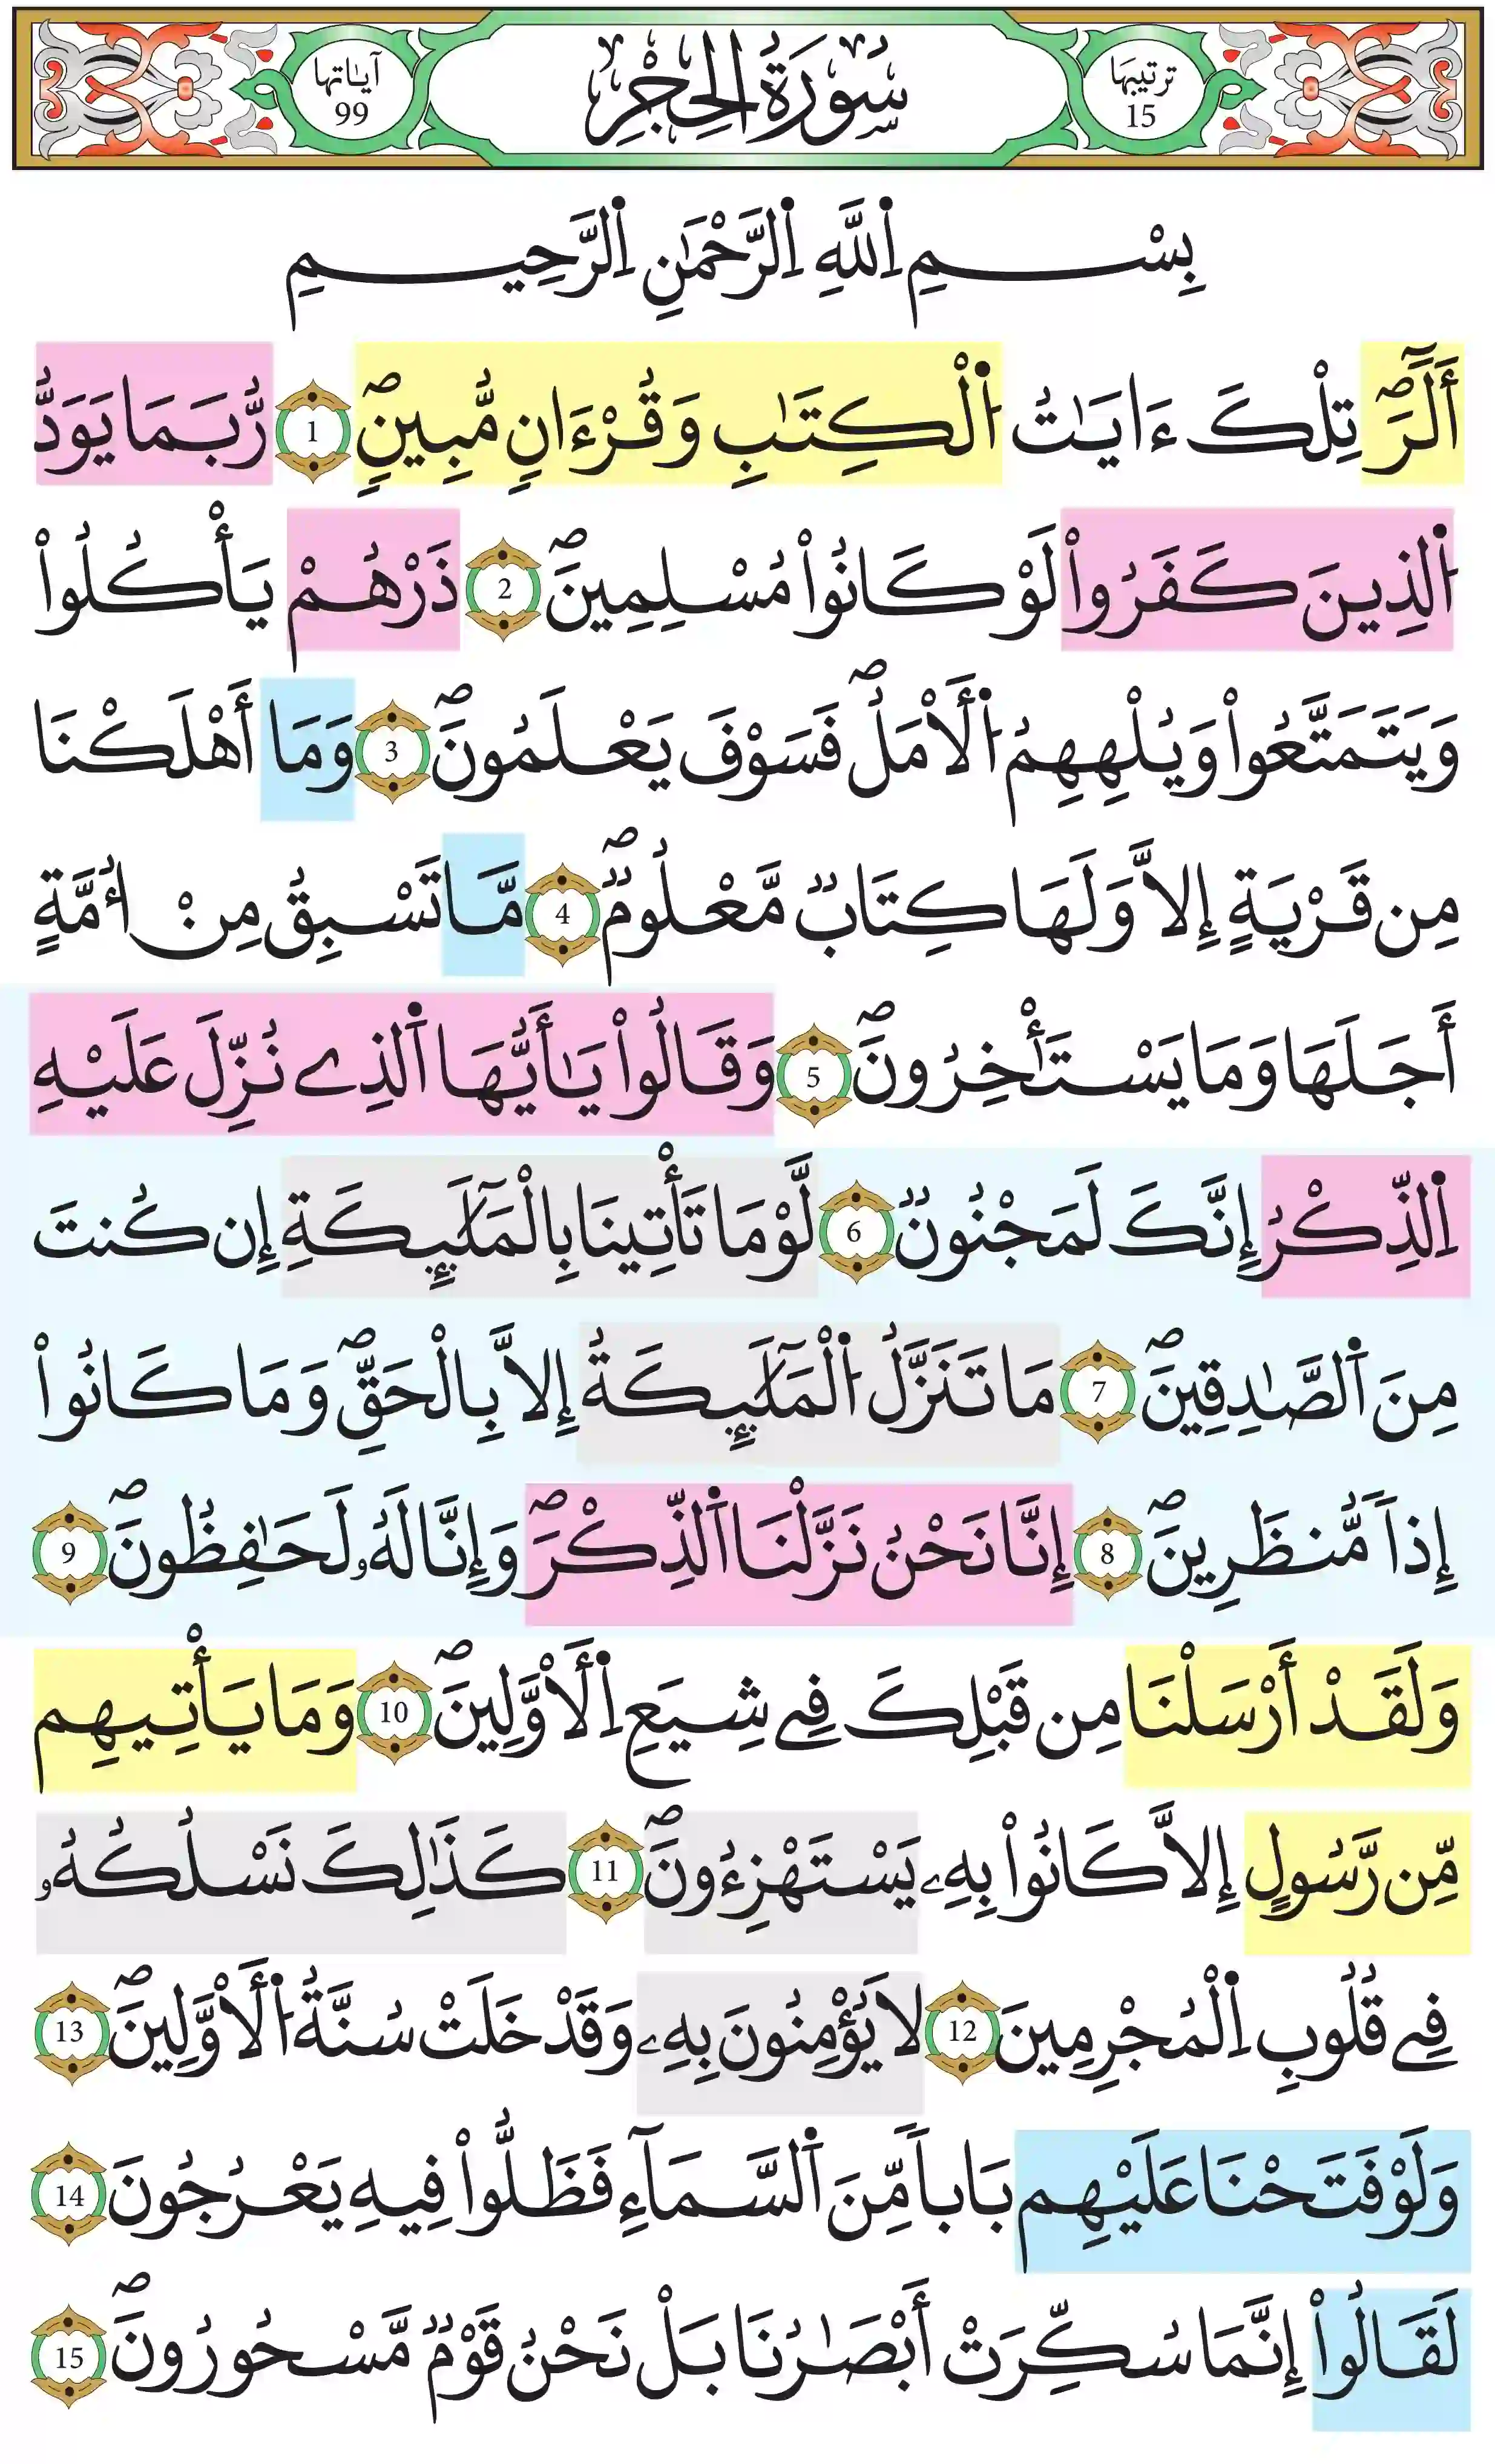 ترتيبها
15
سُورَةُ الحِجْرِ
آياتها
99
بِسْمِ اِ۬للَّهِ اِ۬لرَّحْمَٰنِ اِ۬لرَّحِيمِ
أَلَٓر۪ۖ تِلْكَ ءَايَٰتُ اُ۬لْكِتَٰبِ وَقُرْءَانٖ مُّبِينٖۖ 1 رُّبَمَا يَوَدُّ
اُ۬لذِينَ كَفَرُواْ لَوْ كَانُواْ مُسْلِمِينَۖ 2 ذَرْهُمْ يَأْكُلُواْ
وَيَتَمَتَّعُواْ وَيُلْهِهِمُ اُ۬لَامَلُۖ فَسَوْفَ يَعْلَمُونَۖ 3 وَمَا أَهْلَكْنَا
مِن قَرْيَةٍ إِلَّا وَلَهَا كِتَابٞ مَّعْلُومٞۖ 4 مَّا تَسْبِقُ مِنْ ا۟مَّةٍ
أَجَلَهَا وَمَا يَسْتَٰٔخِرُونَۖ 5 وَقَالُواْ يَٰأَيُّهَا اَ۬لذِے نُزِّلَ عَلَيْهِ
اِ۬لذِّكْرُ إِنَّكَ لَمَجْنُونٞ 6 لَّوْمَا تَأْتِينَا بِالْمَلَٰٓئِكَةِ إِن كُنتَ
مِنَ اَ۬لصَّٰدِقِينَۖ 7 مَا تَنَزَّلُ اُ۬لْمَلَٰٓئِكَةُ إِلَّا بِالْحَقِّۖ وَمَا كَانُواْ
إِذاٗ مُّنظَرِينَۖ 8 إِنَّا نَحْنُ نَزَّلْنَا اَ۬لذِّكْرَۖ وَإِنَّا لَهُۥ لَحَٰفِظُونَۖ 9
وَلَقَدْ أَرْسَلْنَا مِن قَبْلِكَ فِے شِيَعِ اِ۬لَاوَّلِينَۖ 10 وَمَا يَأْتِيهِم
مِّن رَّسُولٍ إِلَّا كَانُواْ بِهِۦ يَسْتَهْزِءُونَۖ 11 كَذَٰلِكَ نَسْلُكُهُۥ
فِے قُلُوبِ اِ۬لْمُجْرِمِينَ 12 لَا يُؤْمِنُونَ بِهِۦ وَقَدْ خَلَتْ سُنَّةُ اُ۬لَاوَّلِينَۖ 13
وَلَوْ فَتَحْنَا عَلَيْهِم بَاباٗ مِّنَ اَ۬لسَّمَآءِ فَظَلُّواْ فِيهِ يَعْرُجُونَ 14
لَقَالُواْ إِنَّمَا سُكِّرَتْ أَبْصَٰرُنَا بَلْ نَحْنُ قَوْمٞ مَّسْحُورُونَۖ 15